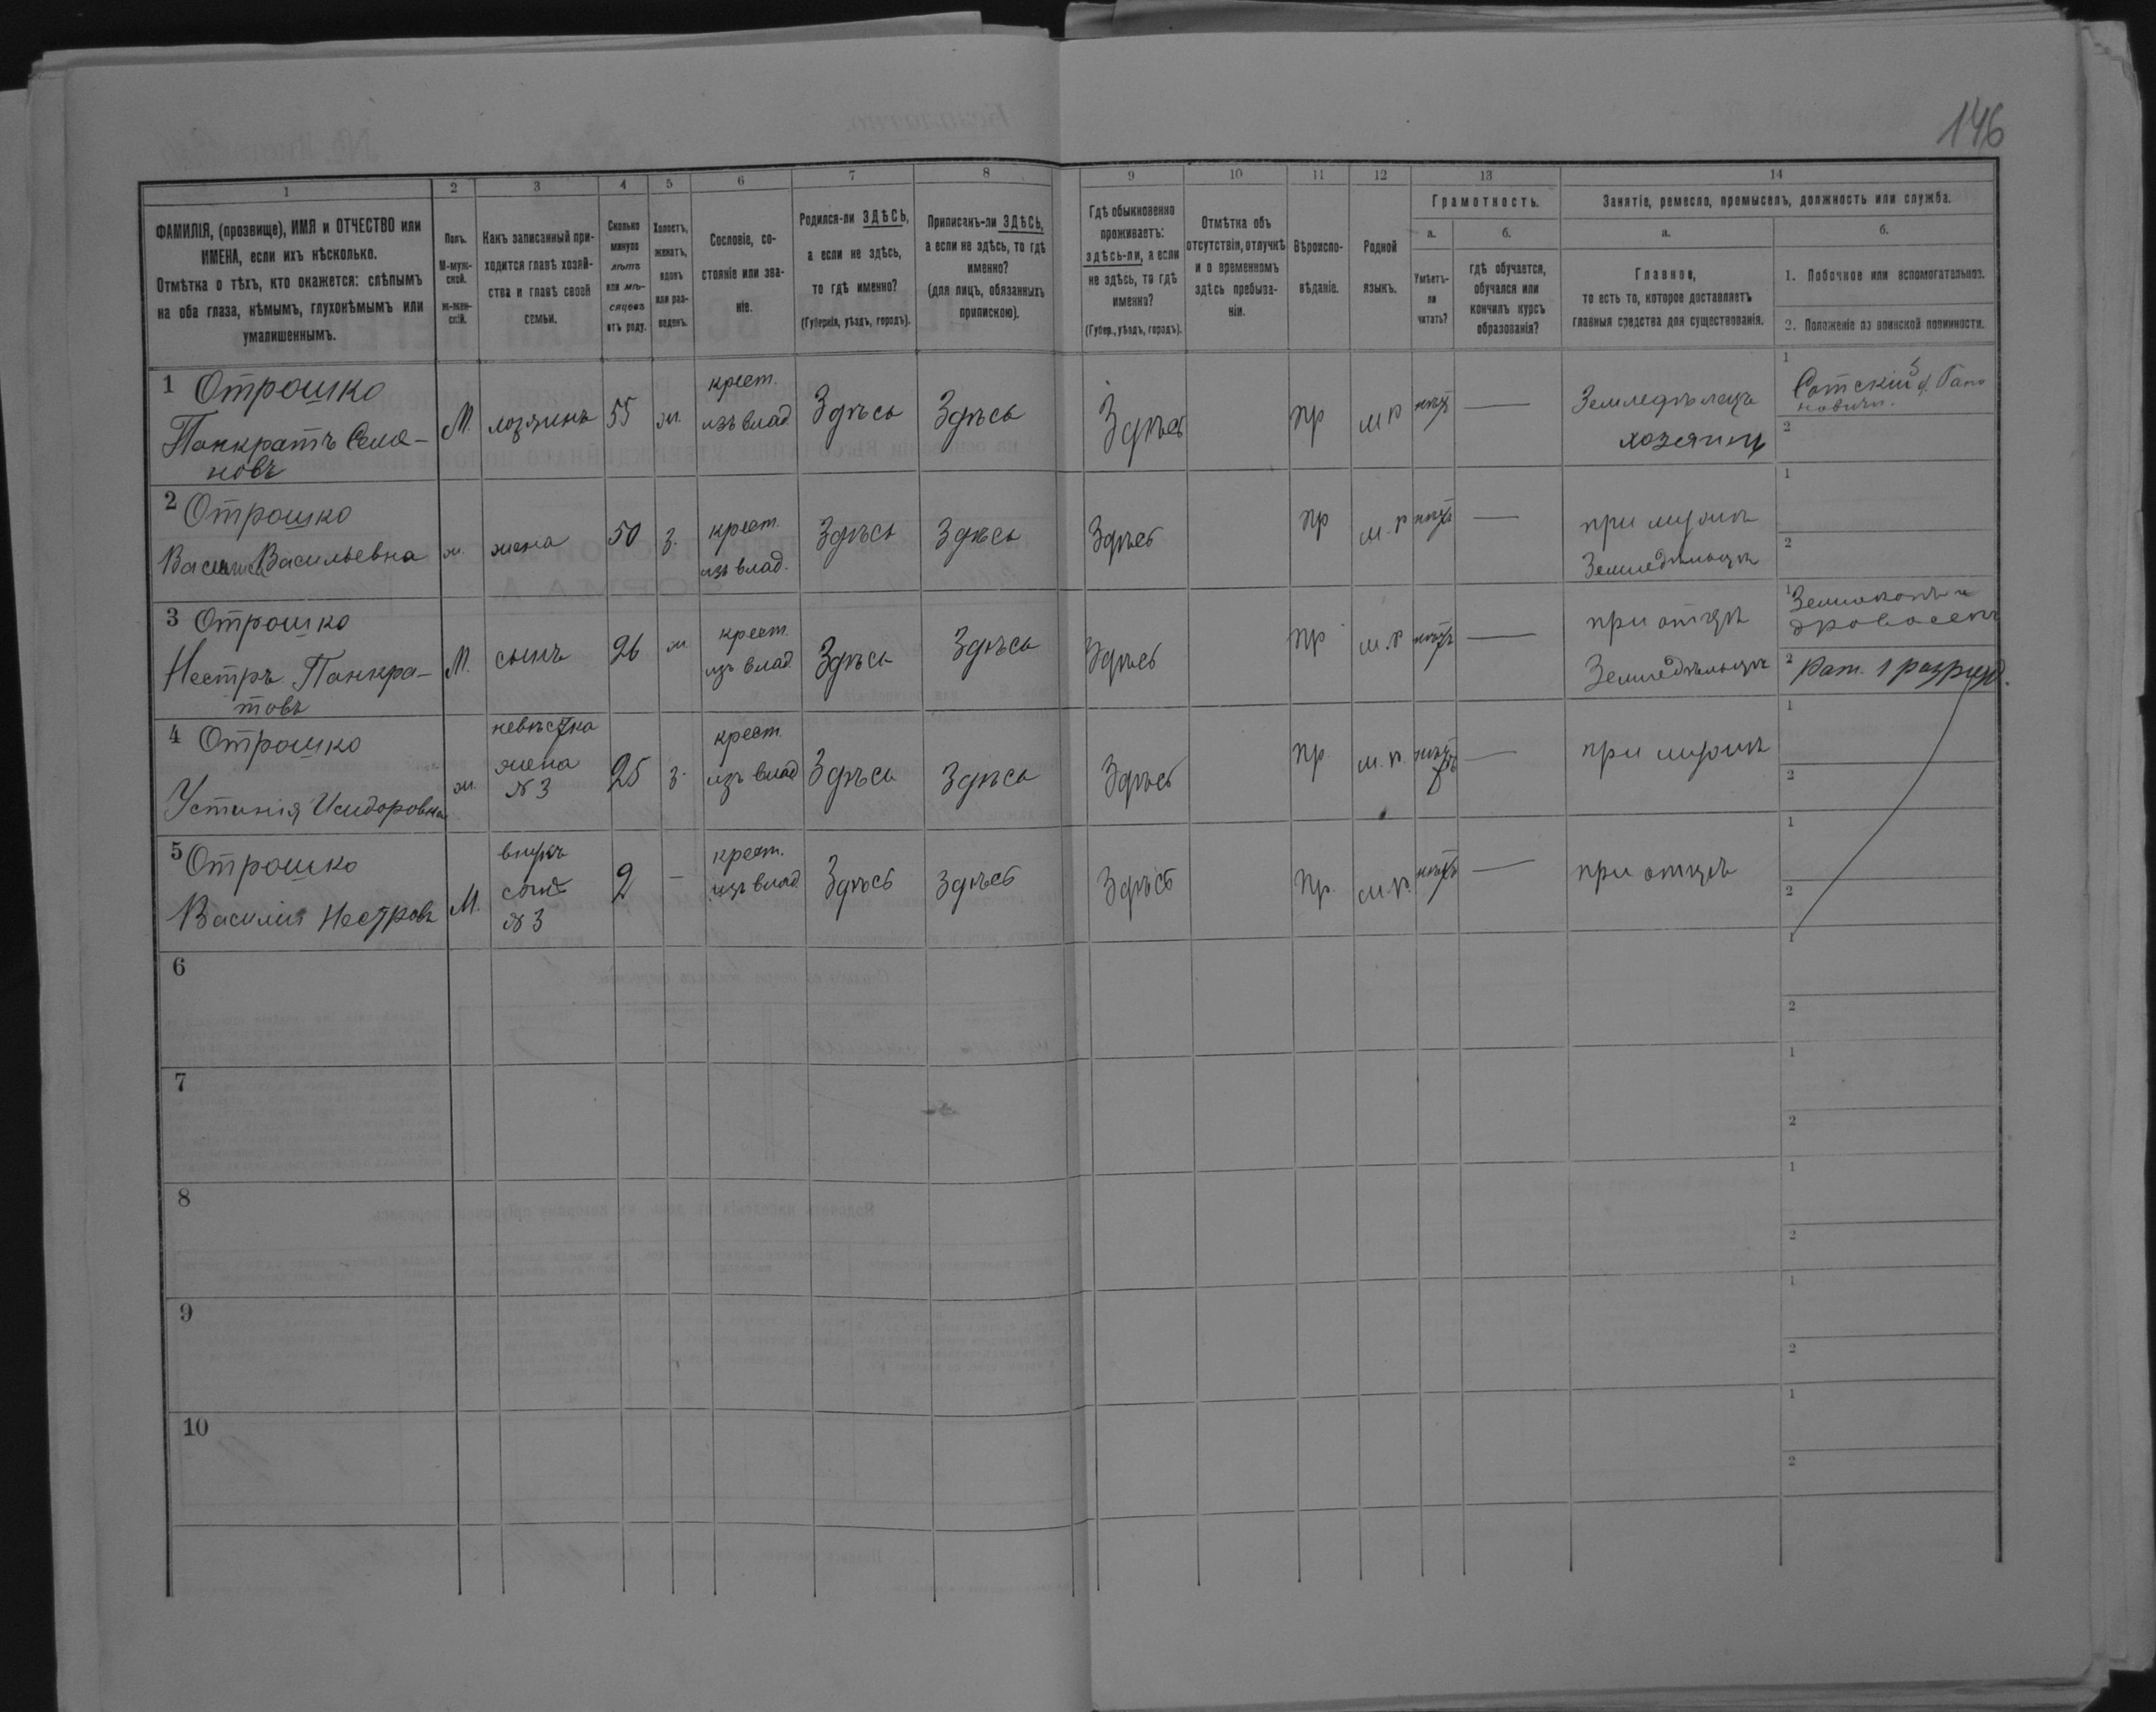 146
1 2 3 4 5 6 7 8 9 10 11 12 13 14
ФАМИЛІЯ, (прозвище), ИМЯ и ОТЧЕСТВО или
ИМЕНА, если ихъ нѣсколько.
Отмѣтка о тѣхъ, кто окажется: слѣпымъ
на оба глаза, нѣмымъ, глухонѣмымъ или
умалишеннымъ.
Полъ.
М-муж-
ской.
ж-жен-
скій.
Какъ записанный при-
ходится главѣ хозяй-
ства и главѣ своей
семьи.
Сколько
минуло
лѣтъ
или мѣ-
сяцевъ
отъ роду.
Холостъ,
женатъ,
вдовъ
или раз-
веденъ.
Сословіе, со-
стояніе или зва-
ніе.
Родился-ли ЗДѢСЬ,
а если не здѣсь,
то гдѣ именно?
(Губернія, уѣздъ, городъ).
Приписанъ-ли ЗДѢСЬ,
а если не здѣсь, то гдѣ
именно?
(для лицъ, обязанныхъ
припискою).
Гдѣ обыкновенно
проживаетъ:
здѣсь-ли, а если
не здѣсь, то гдѣ
именно?
(Губер., уѣздъ, городъ).
Отмѣтка объ
отсутствіи, отлучкѣ
и о временномъ
здѣсь пребыва-
ніи.
Вѣроиспо-
вѣданіе.
Родной
языкъ.
Грамотность.
а.
Умѣетъ-
ли
читать?
б.
гдѣ обучается,
обучался или
кончилъ курсъ
образованія?
Занятіе, ремесло, промыселъ, должность или служба.
а.
Главное,
то есть то, которое доставляетъ
главныя средства для существованія.
б.
1. Побочное или вспомогательное.
2. Положеніе по воинской повинности.
1 Отрошко
Панкратъ Семе-
новъ
М. хозяинъ 55 ж. крест.
изъ влад. Здѣсь Здѣсь Здѣсь пр м р нѣтъ —
Земледѣлецъ
хозяинъ
1 Сотскій
2
2 Отрошко
Васильевна
ж. жена 50 з. крест.
изъ влад. Здѣсь Здѣсь Здѣсь пр м. р нѣтъ —
при мужѣ
Земледѣльцѣ
1
2
3 Отрошко
Нестръ Панкра-
товъ
М. сынъ 26 ж крест.
изъ влад. Здѣсь Здѣсь Здѣсь пр м. р нѣтъ —
при отцѣ
Земледѣльцѣ
1 Землекопъ и
дровосекъ
2 Рат. 1 разряд.
4 Отрошко
Устинія Исидоровна
ж. невѣстка
жена
№ 3
25 з. крест.
изъ влад Здѣсь Здѣсь Здѣсь пр м. р. нѣтъ —
при мужѣ
1
2
5 Отрошко
Василій Нестровъ
М. внукъ
сынъ
№ 3
2 – крест.
изъ влад. Здѣсь здѣсь Здѣсь пр. м. р. нѣтъ —
при отцѣ
1
2
6
1
2
7
1
2
8
1
2
9
1
2
10
1
2